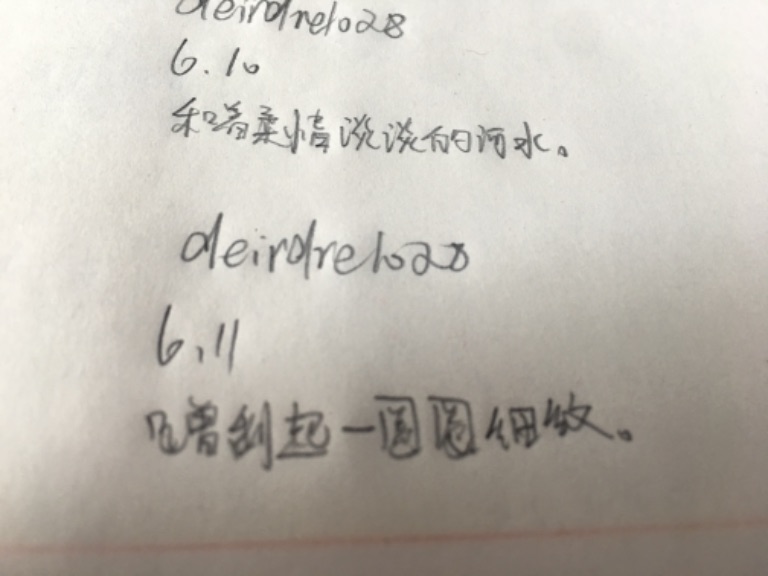 deirdre1028
6.10
和着柔情谈谈的河水。
deirdre1028
6.11
噌刮起一圆圆细纹。